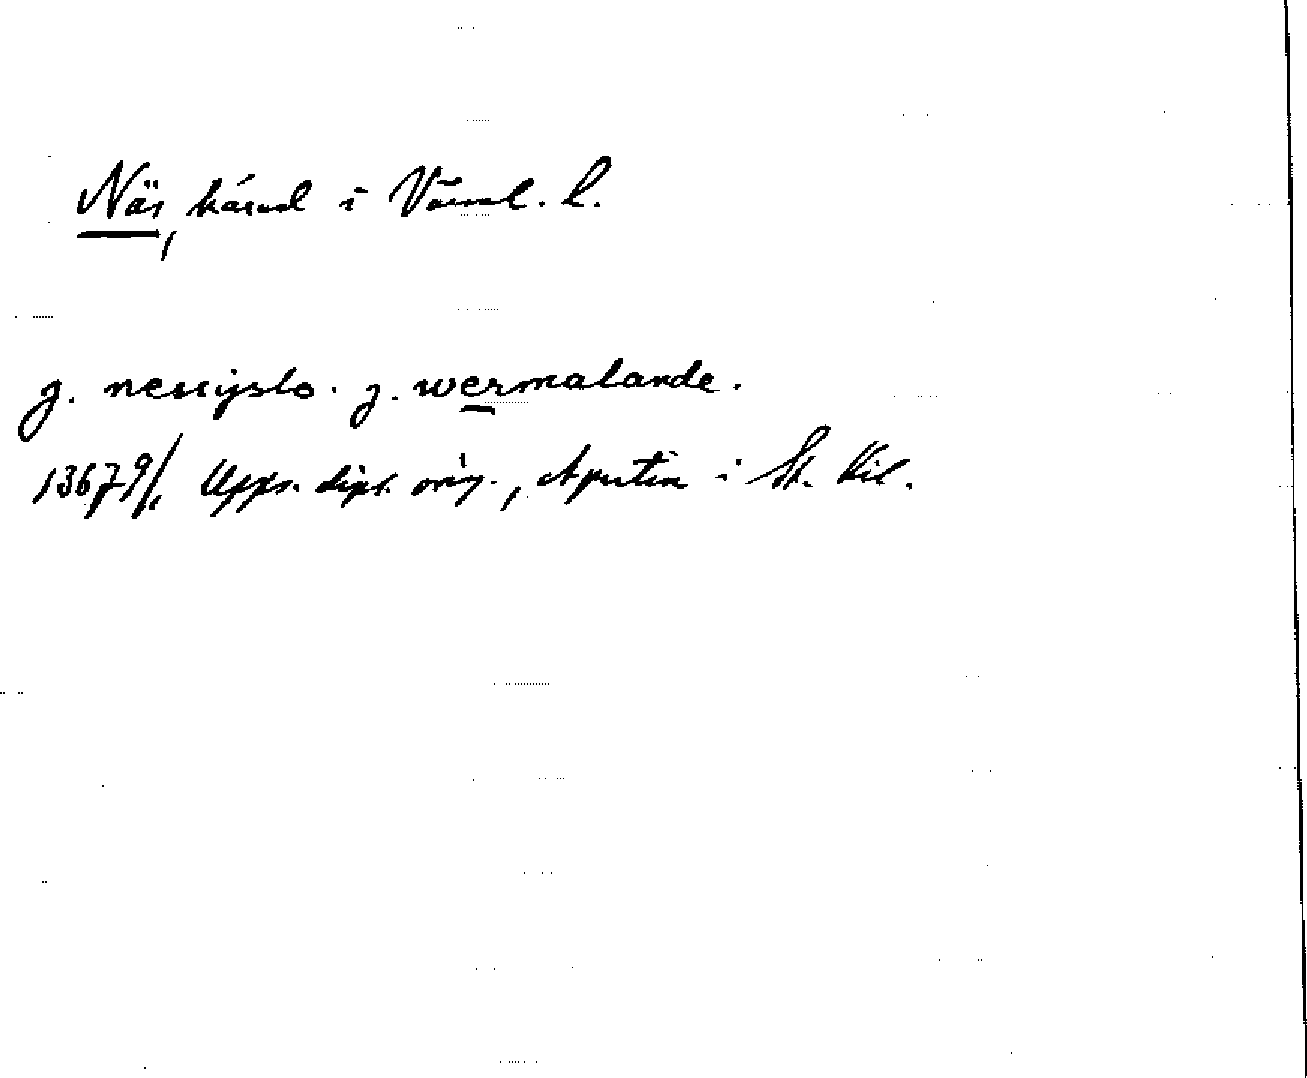 Näs, härad i Värml. l.
j. nessyslo. j. wermalande.
1367 9/1 Upps. dipl. orig., i St. Kil.